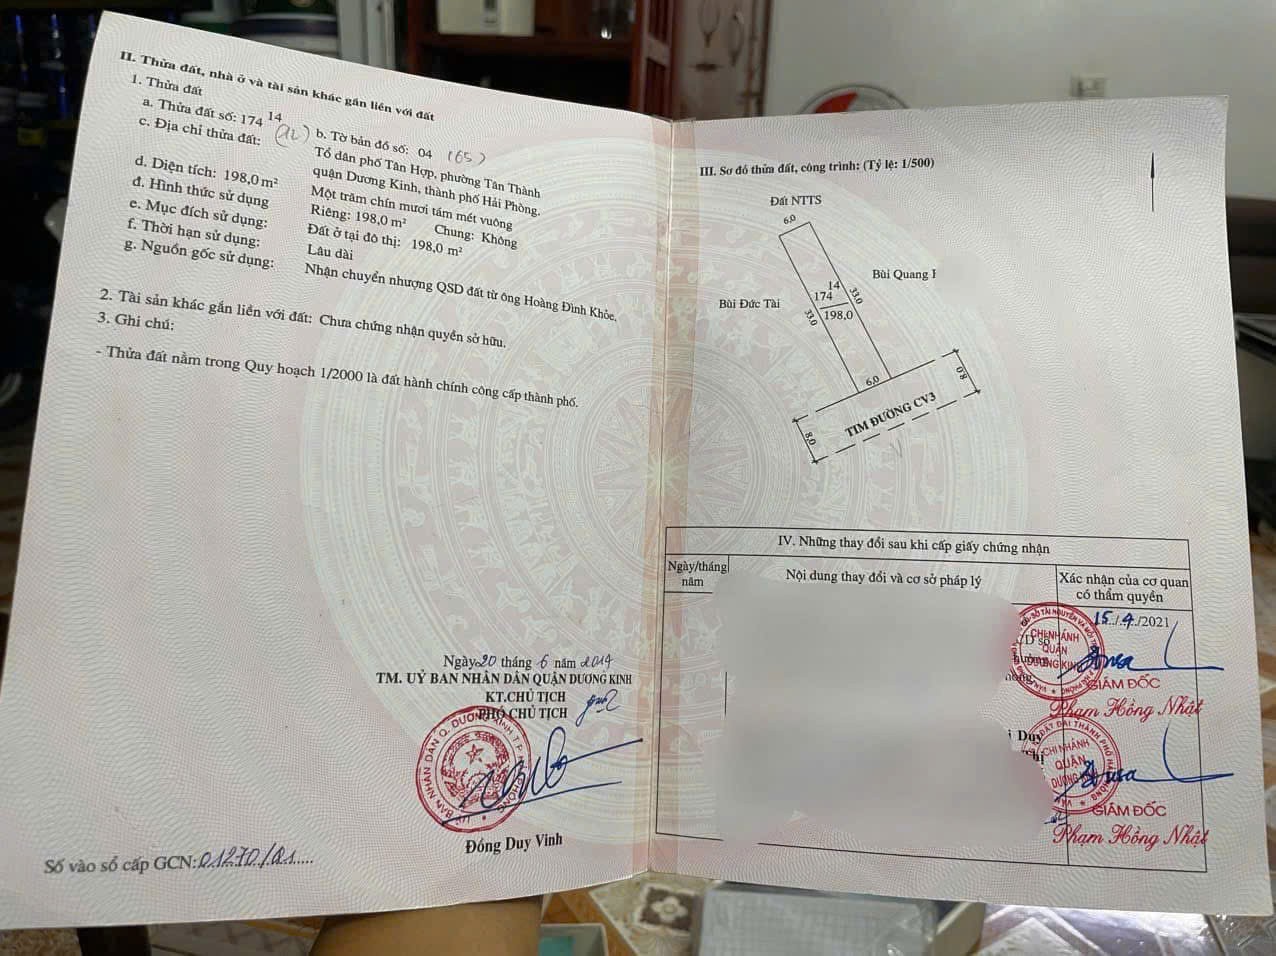 II. Thửa đất, nhà ở và tài sản khác gắn liền với đất
1. Thửa đất
a. Thửa đất số: 174 14
(12)
b. Tờ bản đồ số: 04 (65)
c. Địa chỉ thửa đất:
Tổ dân phố Tân Hợp, phường Tân Thành
quận Dương Kinh, thành phố Hải Phòng.
d. Diện tích: 198,0 m²
Một trăm chín mươi tám mét vuông
đ. Hình thức sử dụng
Riêng: 198,0 m² Chung: Không
e. Mục đích sử dụng:
Đất ở tại đô thị: 198,0 m²
f. Thời hạn sử dụng:
Lâu dài
g. Nguồn gốc sử dụng:
Nhận chuyển nhượng QSD đất từ ông Hoàng Đình Khỏe.
2. Tài sản khác gắn liền với đất: Chưa chứng nhận quyền sở hữu.
3. Ghi chú:
- Thửa đất nằm trong Quy hoạch 1/2000 là đất hành chính công cấp thành phố.
Ngày 20 tháng 6 năm 2014
TM. UỶ BAN NHÂN DÂN QUẬN DƯƠNG KINH
KT.CHỦ TỊCH
PHÓ CHỦ TỊCH
Đồng Duy Vinh
Số vào sổ cấp GCN: 01270/01.....
III. Sơ đồ thửa đất, công trình: (Tỷ lệ: 1/500)
Đất NTTS
6,0
Bùi Quang
Bùi Đức Tài
14
174
198,0
33,0
33,0
6,0
8,0
8,0
TIM ĐƯỜNG CV3
IV. Những thay đổi sau khi cấp giấy chứng nhận
Ngày/tháng
năm
Nội dung thay đổi và cơ sở pháp lý
Xác nhận của cơ quan
có thẩm quyền
15/4/2021
CHI NHÁNH
QUẬN
DƯƠNG KINH
GIÁM ĐỐC
Phạm Hồng Nhật
Duy
CHI NHÁNH
QUẬN
DƯƠNG KINH
GIÁM ĐỐC
Phạm Hồng Nhật